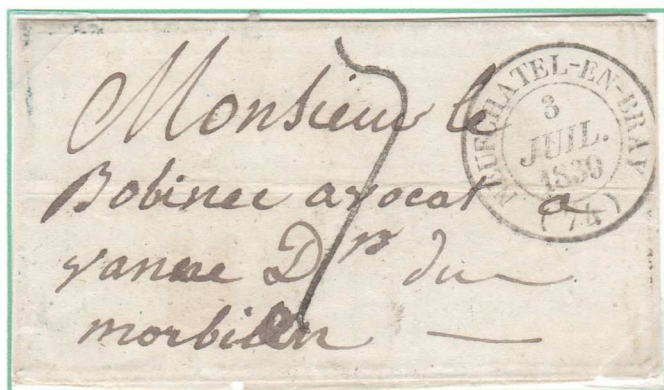 Monsieur le
Bobinec avocat a
vanne Dr du
morbien
7
NEUFCHATEL-EN-BRAY
3
JUIL.
1839
(74)